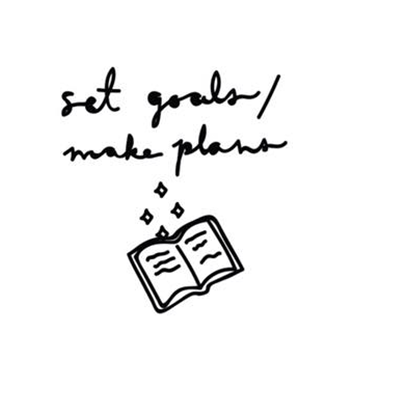 set goals/
make plans